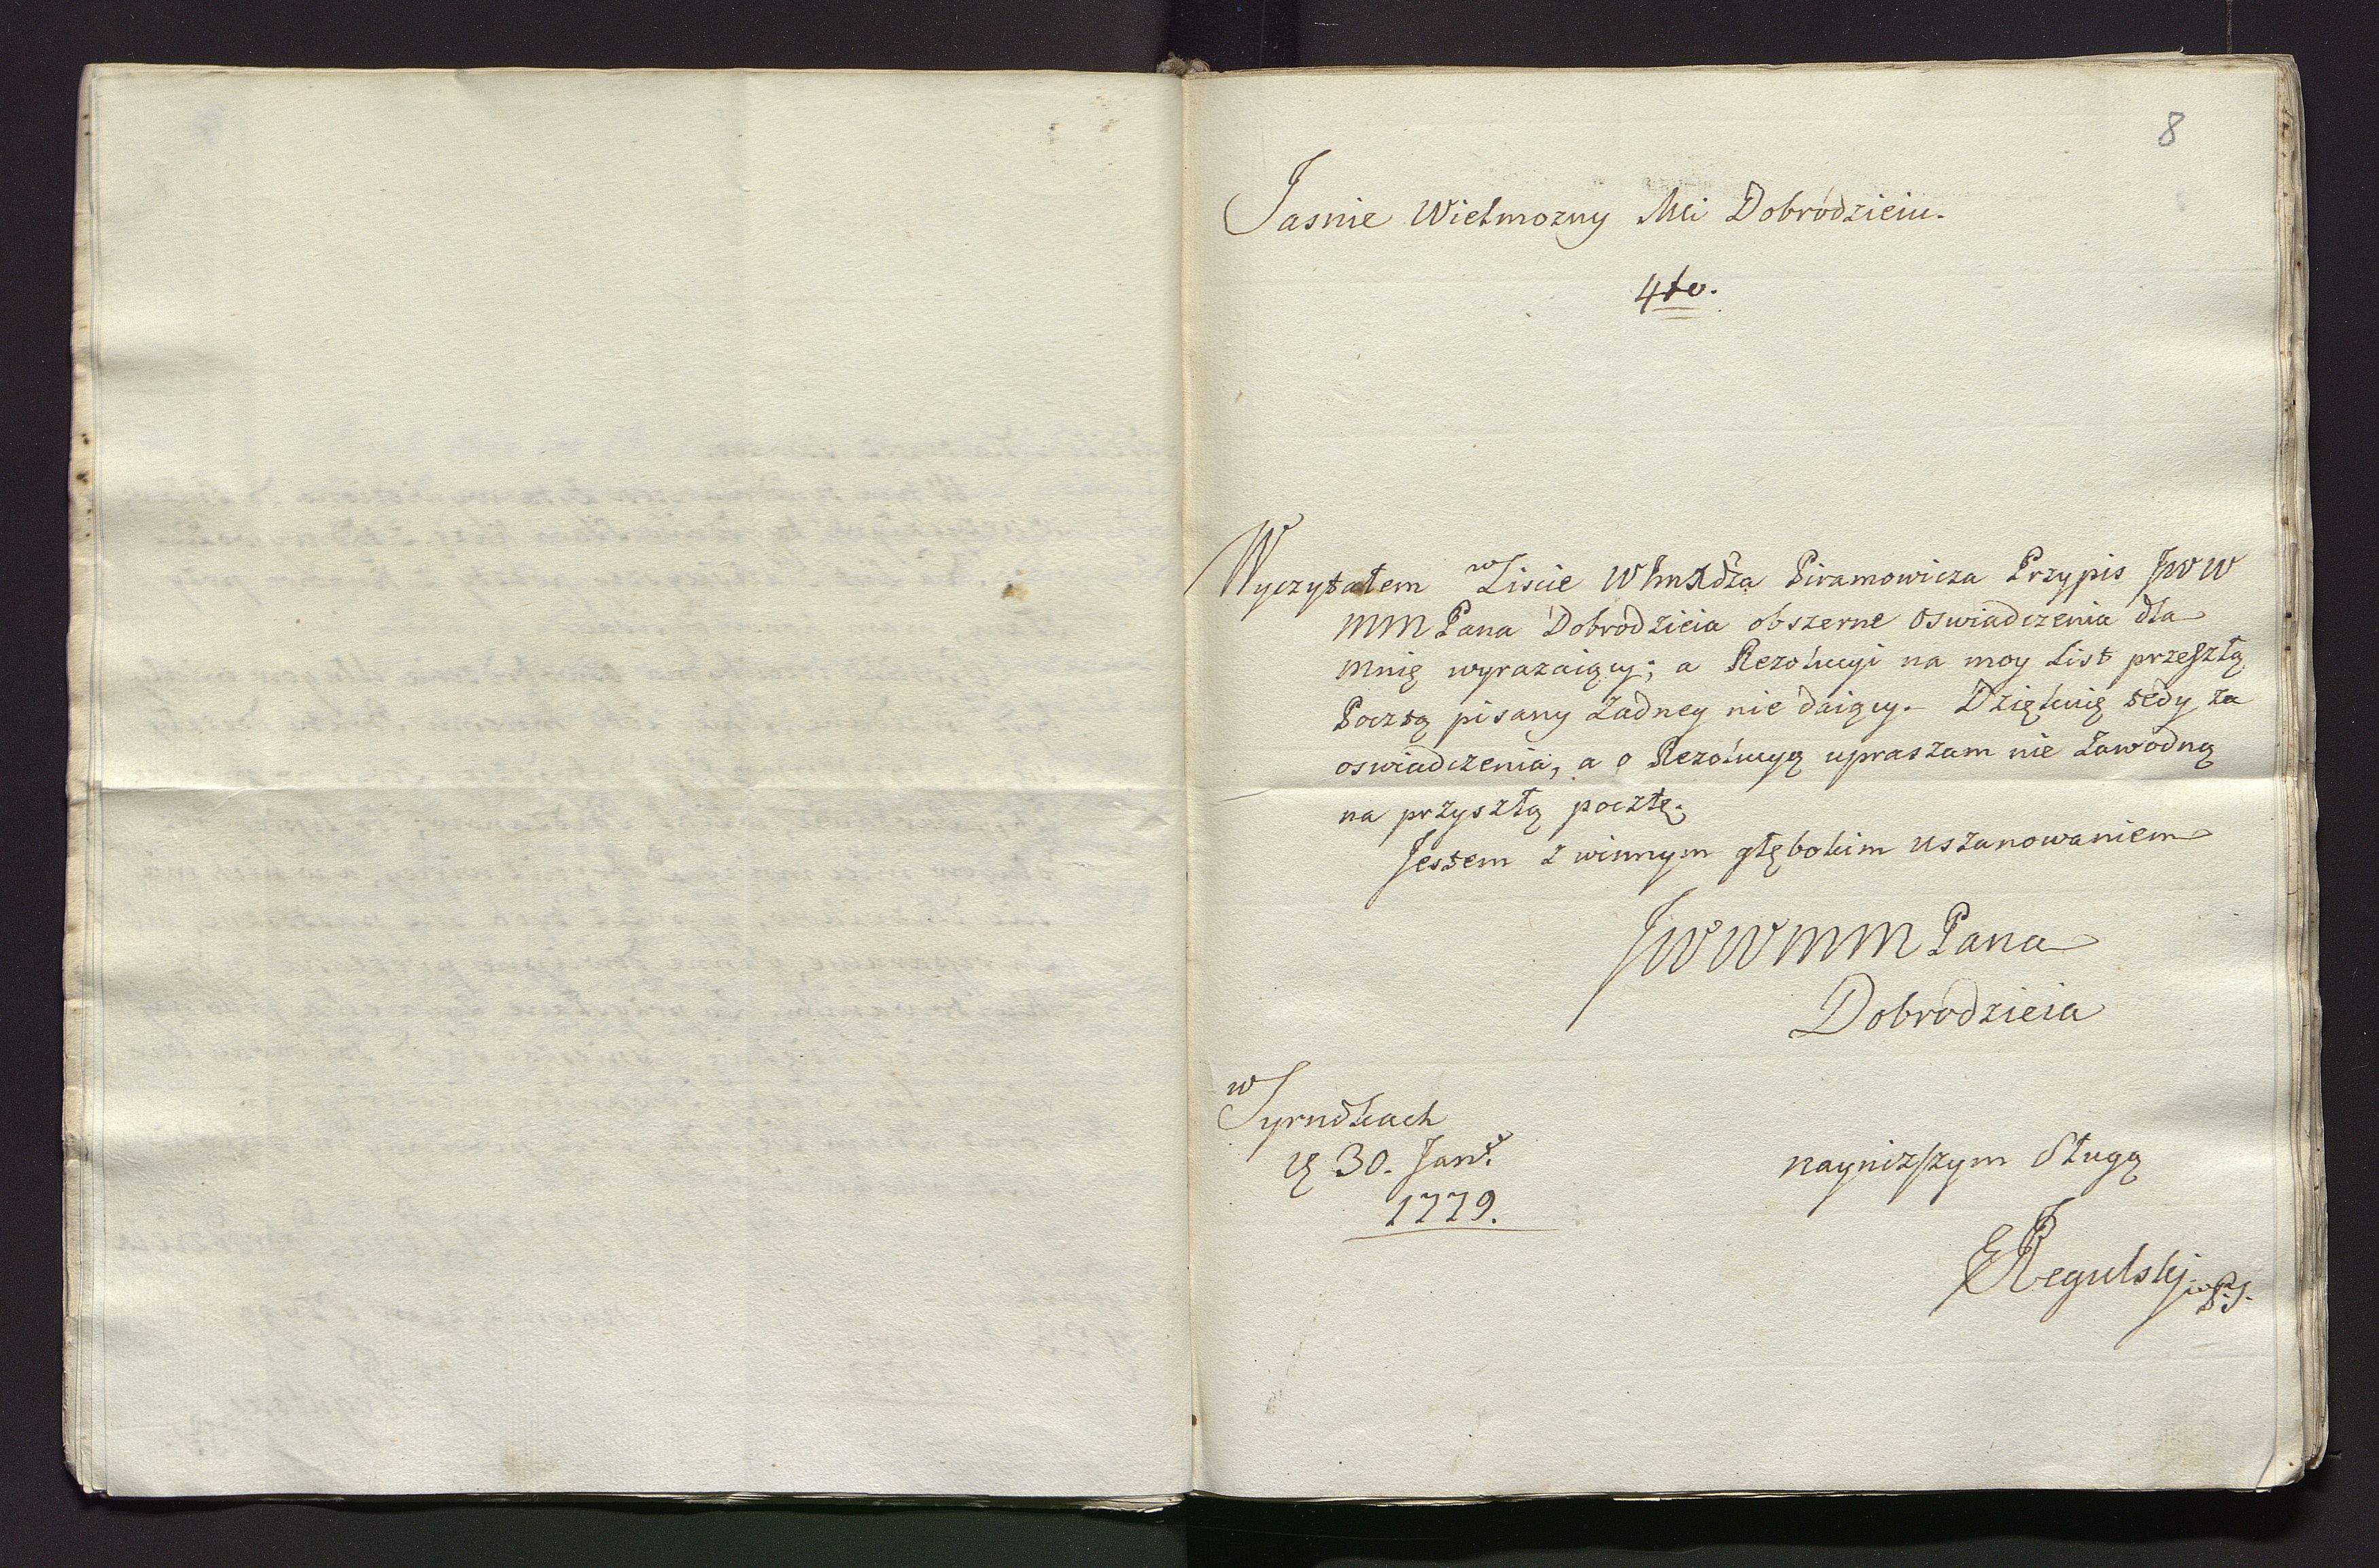 8
Jasnie Wielmozny Mci Dobrodzieiu.
4to.
Wyczytałem w Liscie WImXdza Piramowicza Przypis JWW
MM Pana Dobrodzieia obszerne oswiadczenia dla
mnię wyrazaiący; a Rezolucyi na moy List przeszłą
Pocztą pisany zadney nie daiący. Dziękuię tedy za
oswiadczenia, a o Rezolucyą upraszam nie zawodną
na przyszłą pocztę.
Jestem z winnym głębokim uszanowaniem
JWWMM Pana
Dobrodzieia
w Tyrudkach
30. Janr.
1779.
nayniższym Sługą
E Regulski